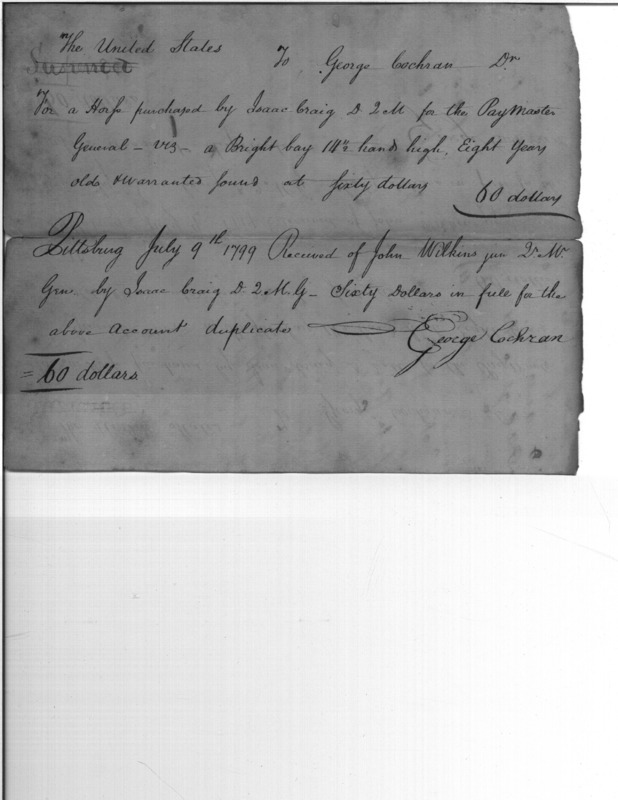 The United States To George Cochran Dr
Suspended
For a Horse purchased by Isaac Craig D Q M for the PayMaster
General - viz - a Bright bay 14½ hands high, Eight Years
old & warranted sound at sixty dollars 60 dollars
Pittsburg July 9th 1799 Received of John Wilkins jun Qr Mr
Gen. by Isaac Craig D. Q. M. G - Sixty Dollars in full for the
above Account duplicates
George Cochran
= 60 dollars